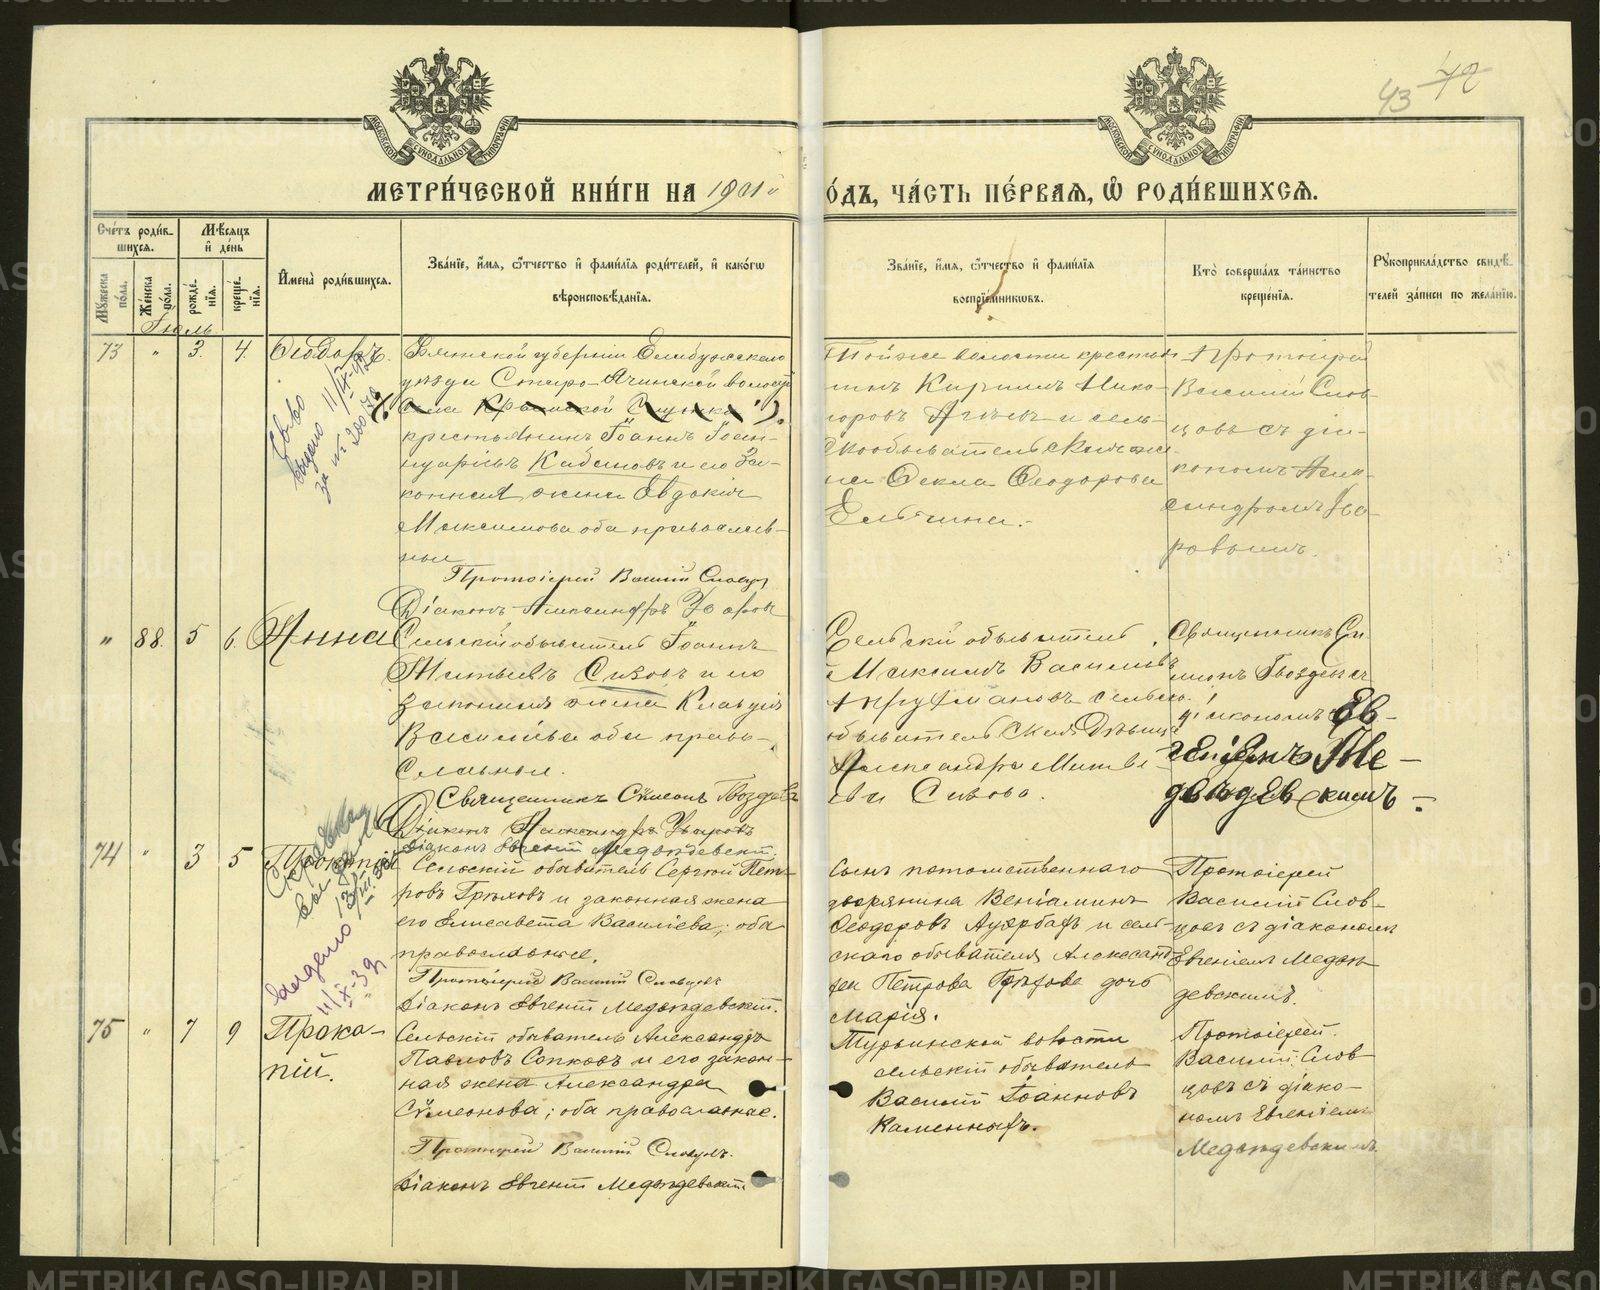 43 42
МЕТРИ́ЧЕСКОЙ КНИ́ГИ НА 1901й
О́ДЪ, ЧА́СТЬ ПЕ́РВАЯ, Ѡ РОДИ́ВШИХСЯ.
Сче́тъ роди́вшихся.
Мѣ́сяцъ и҆ де́нь
Мꙋ́жеска по́ла.
Же́нска по́ла.
рожде́нїя.
креще́нїя.
И҆мена̀ роди́вшихся.
Зва́нїе, и҆́мя, ѻ҆́тчество и҆ фами́лїя роди́телей, и҆ како́гѡ
вѣроисповѣ́данїя.
Зва́нїе, и҆́мя, ѻ҆́тчество и҆ фами́лїя
воспрїе́мникѡвъ.
Кто̀ соверша́лъ та́инство
креще́нїя.
Рꙋкоприкла́дство свидѣ́телей за́писи по жела́нїю.
Іюль
73 " 3. 4. Ѳеодоръ.
Вятской губерніи Елабужскаго
уѣзда Старо-Ячинской волости
крестьянинъ Іоаннъ Іоан-
нуаріевъ Кабановъ и его За-
конная жена Евдокія
Максимова оба православ-
ные
Протоіерей Василій Словцовъ
Діаконъ Александръ Уваровъ
Той же волости крестья-
нинъ Кириллъ Нико-
норовъ Агѣевъ и сель-
скообывательская же-
на Ѳекла Ѳеодорова
Ельчина.
Протоіерей
Василій Слов-
цовъ съ діа-
кономъ Алек-
сандромъ Ува-
ровымъ.
Св-во
выдано 11/IX-42
за № 20070
" 88. 5 6. Анна
Сельскій обыватель Іоаннъ
Матвѣевъ Сивовъ и его
законная жена Клавдія
Василіева оба право-
славные.
Священникъ Симеонъ Гвоздевъ
Діаконъ Александръ Уваровъ
Діаконъ Евгеній Медвѣдевскій.
Сельскій обыватель
Максимъ Василіевъ
и сельско-
обывательская Дѣвица
Александра Матвѣ-
ева Сивова.
Священникъ Си-
меонъ Гвоздевъ съ
діакономъ Ев-
геніемъ Ме-
двѣдевскимъ.
74 " 3 5 Прокопій
Сельскій обыватель Сергѣй Пет-
ровъ Грѣховъ и законная жена
его Елисавета Василіева; оба
православные.
Протоіерей Василій Словцовъ
Діаконъ Евгеній Медвѣдевскій.
Сынъ потомственнаго
дворянина Веніаминъ
Ѳеодоровъ Ауэрбахъ и сель-
скаго обывателя Александ-
ра Петрова Грѣхова дочь
Марія.
Протоіерей
Василій Слов-
цовъ съ діакономъ
Евгеніемъ Медвѣ-
девскимъ.
выдано
11/X-39
75 " 7 9 Проко-
пій.
Сельскій обыватель Александръ
Павловъ Сопковъ и его закон-
ная жена Александра
Симеонова; оба православные.
Протоіерей Василій Словцовъ.
Діаконъ Евгеній Медвѣдевскій
Турьинской волости
сельскій обыватель
Василій Іоанновъ
Каменныхъ.
Протоіерей
Василій Слов-
цовъ съ діако-
номъ Евгеніемъ
Медвѣдевскимъ.
METRIKI.GASO-URAL.RU